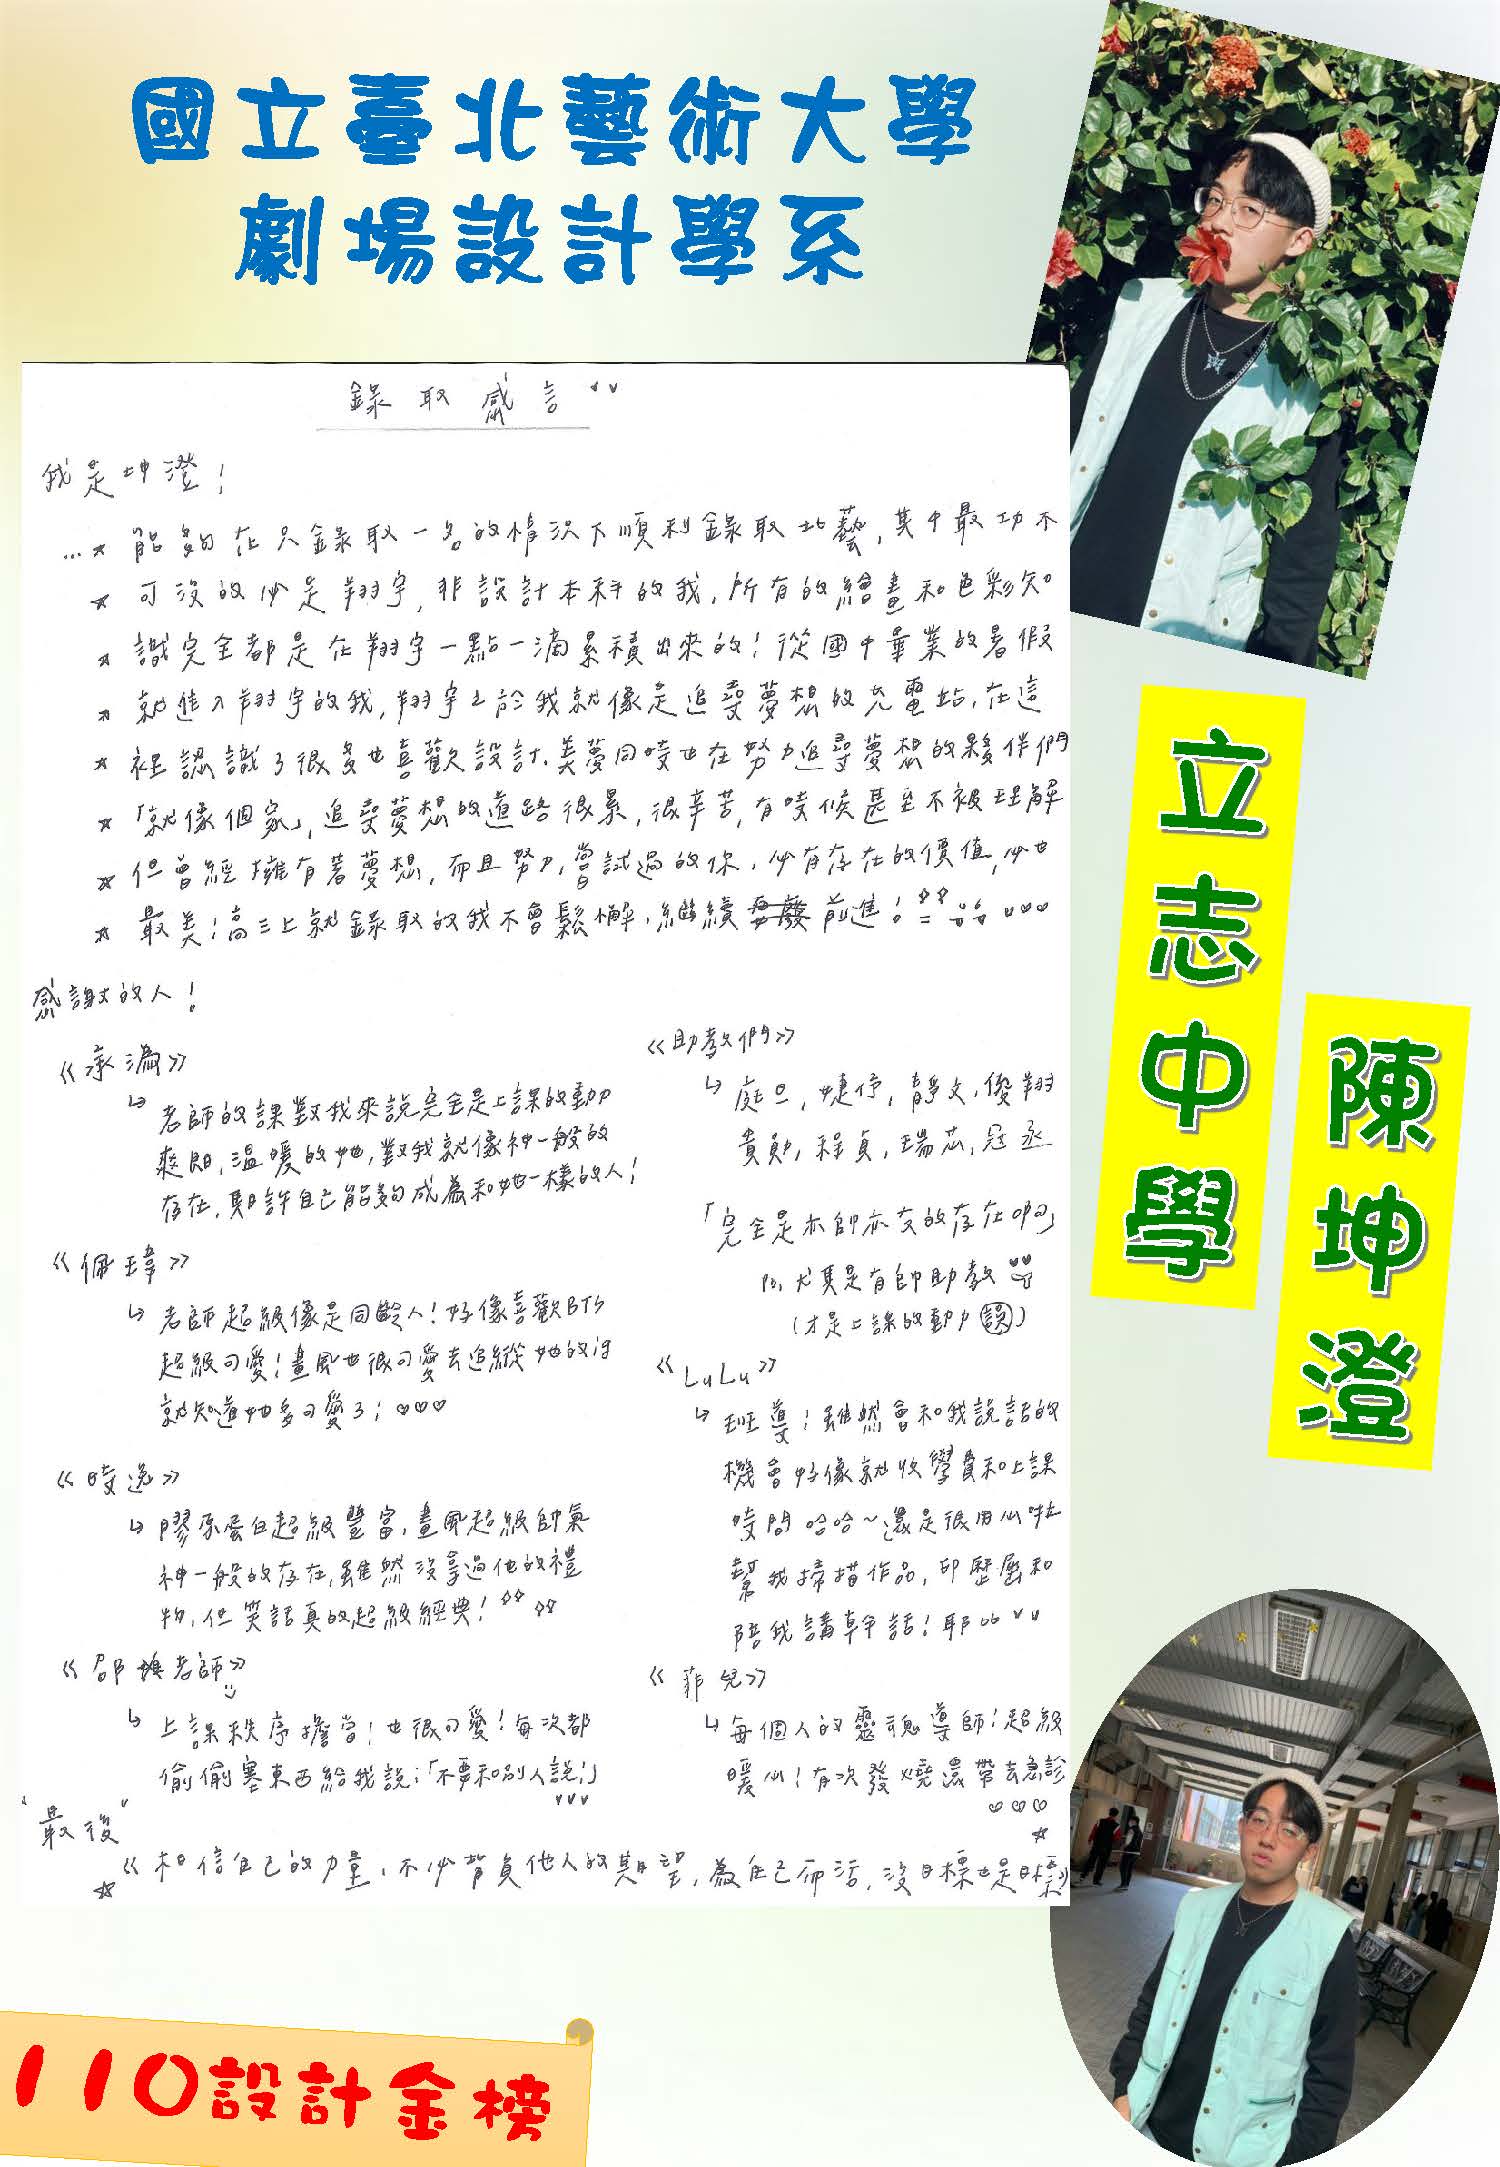 國立臺北藝術大學
劇場設計學系
錄取感言
我是坤澄！
能夠在只錄取一名的情況下順利錄取北藝，其中最功不
可沒的必是翔宇，非設計本科的我，所有的繪畫和色彩知
識完全都是在翔宇一點一滴累積出來的！從國中畢業的暑假
就進入翔宇的我，翔宇之於我就像是追尋夢想的充電站，在這
裡認識了很多也喜歡設計、美夢同時也在努力追尋夢想的夥伴們
「就像個家」，追尋夢想的道路很累，很辛苦，有時候甚至不被理解
但曾經擁有著夢想，而且努力，嘗試過的你，必有存在的價值，必也
最美！高三上就錄取的我不會鬆懈，繼續前進！
感謝的人！
《承漪》
↳ 老師的課對我來說完全是上課的動力
爽朗，溫暖的她，對我就像神一般的
存在，期許自己能夠成為和她一樣的人！
《佩瑋》
↳ 老師超級像是同齡人！好像喜歡BTS
超級可愛！畫風也很可愛去追縱她的
就知道她多可愛了；♡♡♡
《時逸》
↳ 膠原蛋白超級豐富，畫風超級帥氣
神一般的存在，雖然沒拿過他的禮
物，但笑話真的超級經典！
《邵 老師》
↳ 上課秩序擔當！也很可愛！每次都
偷偷塞東西給我說：「不要和別人說！」
《助教們》
↳ 庭旦，婕伃，靜文，優翔
貴勛，程貞，瑞芯，冠丞
「完全是亦師亦友的存在啊」
尤其是有帥助教
(才是上課的動力誤)
《LuLu》
↳ 班導！雖然會和我說話的
機會好像就收學費和上課
時間哈哈~還是很用心啦
幫我掃描作品，印歷屆和
陪我講幹話！耶
《菲兒》
↳ 每個人的靈魂導師！超級
暖心！有次發燒還帶去急診
♡♡♡
"最後"
《相信自己的力量，不必背負他人的期望，為自己而活，沒目標也是目標》
立志中學
陳坤澄
110設計金榜